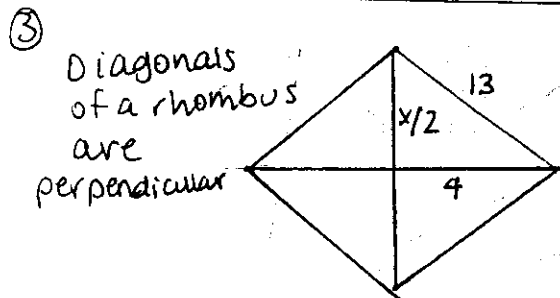 ③
Diagonals
of a rhombus
are
perpendicular
13
x/2
4